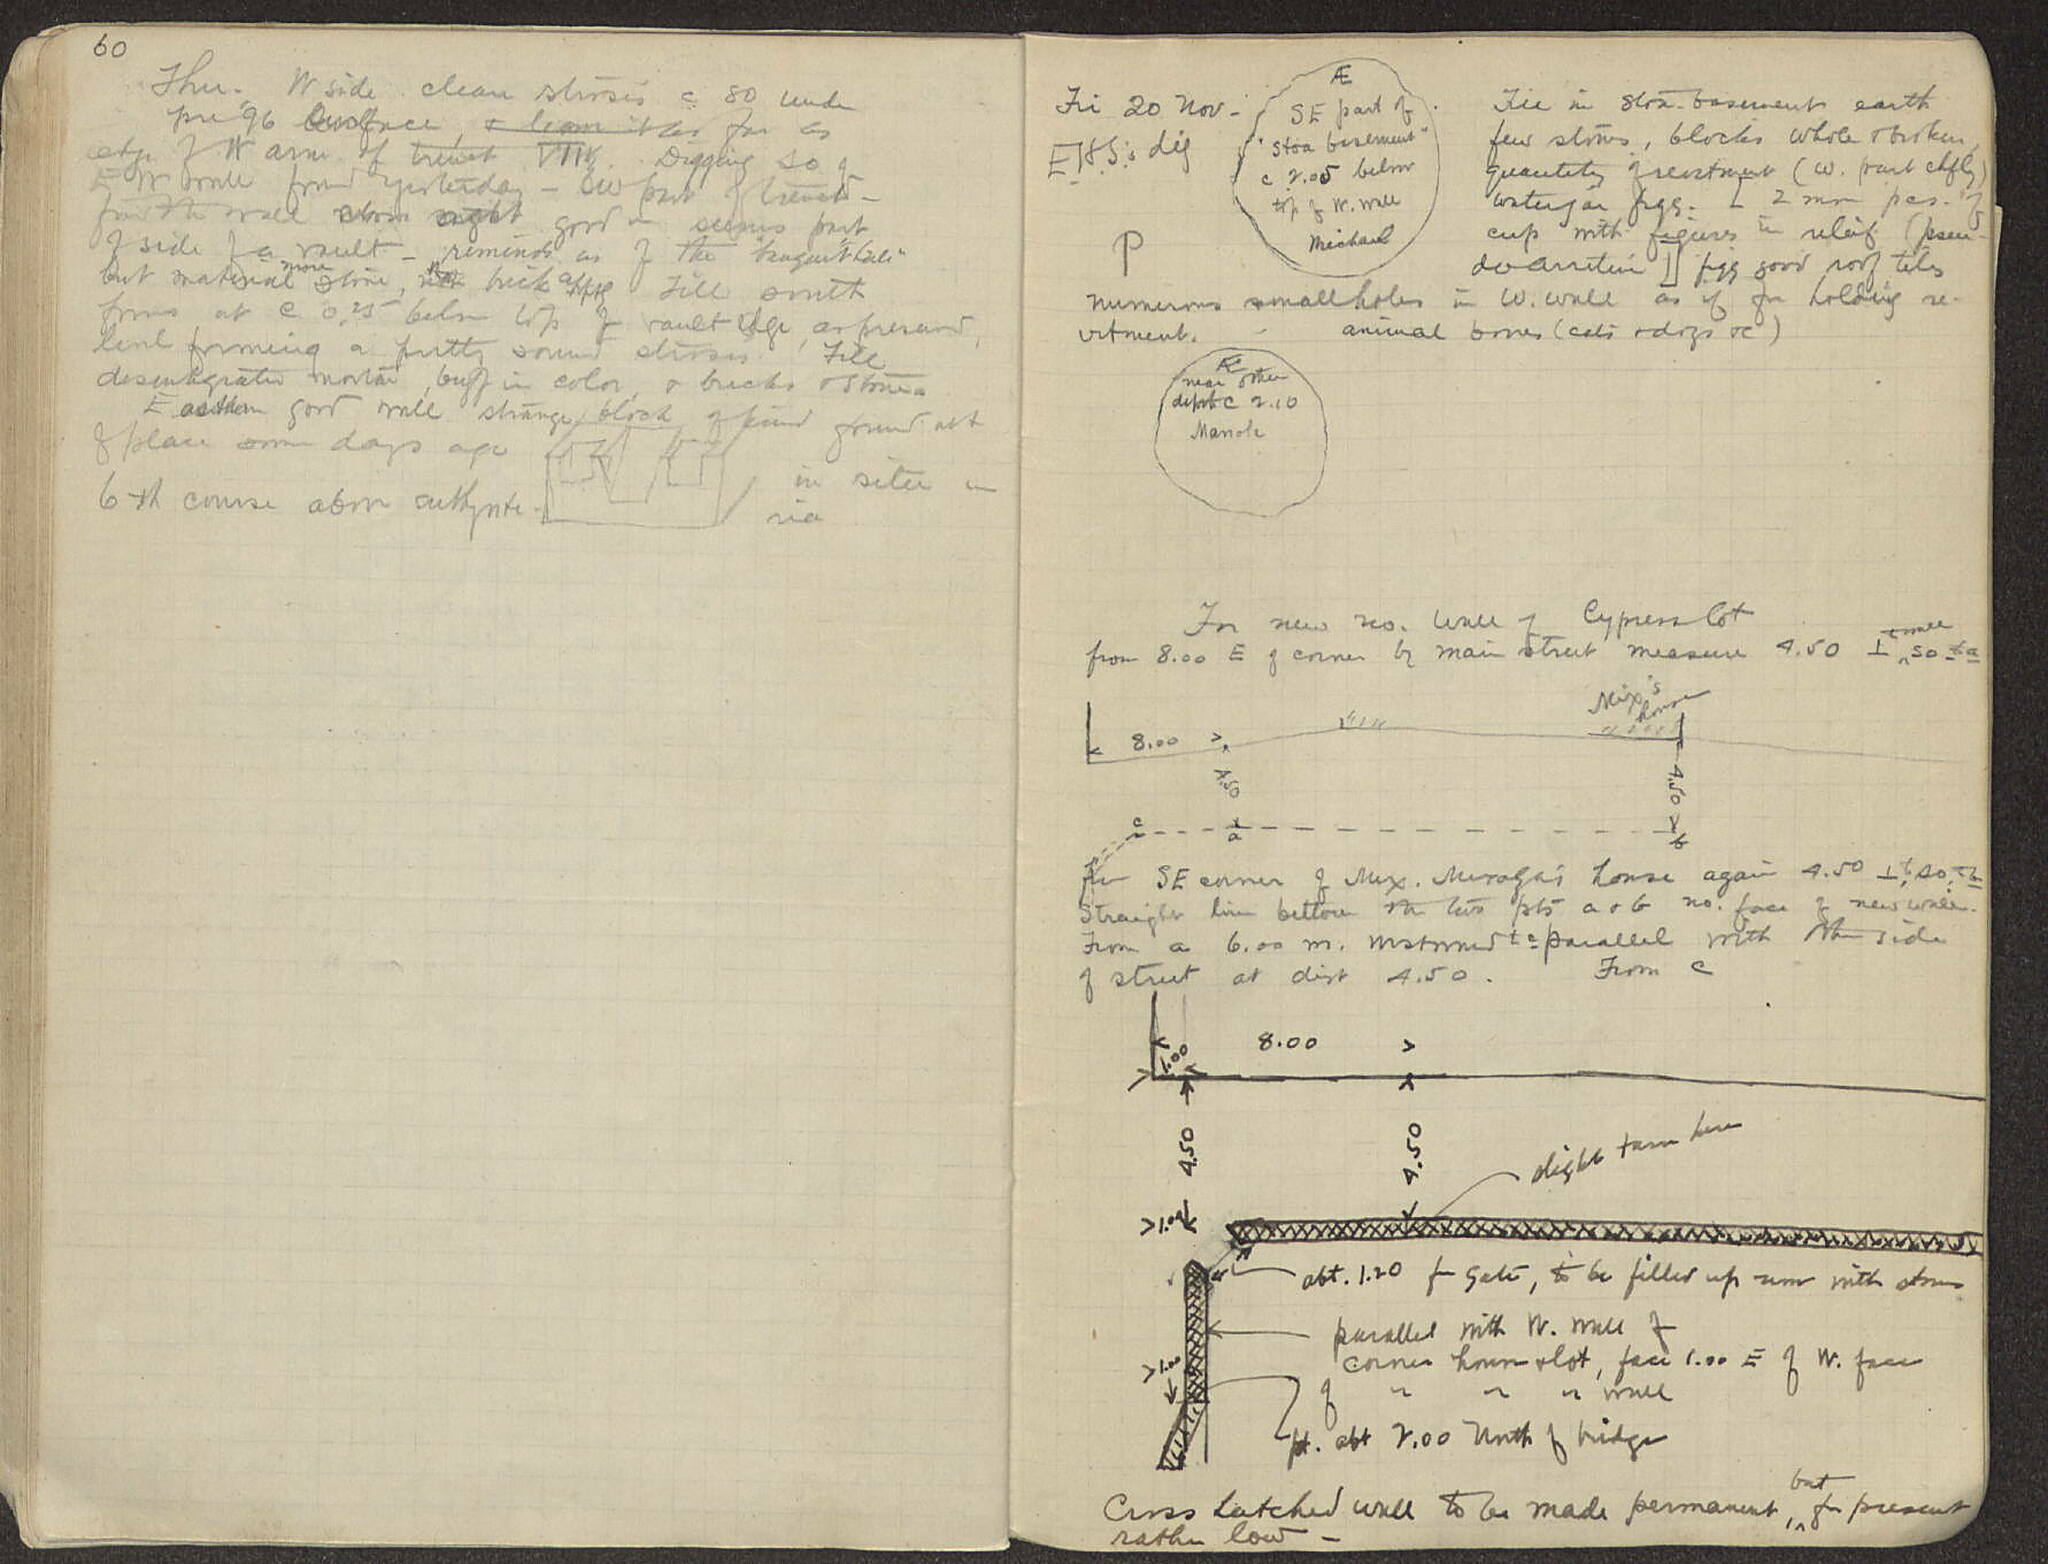 60
Thu. W side clean strosis c 80 under
pre 96 surface, as far as
edge of W arm of trench VIII. Digging so of
E W wall found yesterday - SW part of trench -
wall good - seems part
of side of a vault - reminds us of the
but material more stone, brick Fill south
at c. 0.25 below top of vault edge, as preserved,
level forming a pretty sound strosis. Fill
desintegrated mortar, buff in color, & bricks & stones
E good wall strange block of found out
of place some days ago
in situ in
6th course above
via
Fri 20 Nov -
E.H.S.'s dig
Æ
SE part of
"Stoa basement"
c 2.05 below
top of W. wall
Michael
Fill in Stoa-basement earth
few stones, blocks whole & broken,
quantity of revetment (W. part chfly)
waterjar fgg. [ 2 more pcs. of
cup with figures in relief (pseu-
do arretin ]] fgg good roof tiles
P
numerous small holes in W. wall as if for holding re-
vetment. animal bones (cats & dogs &c)
Æ
near other
depth c 2.10
Manole
For new no. wall of Cypress lot
from 8.00 E of corner by main street measure 4.50 ⊥ to wall so to a
Mix's
house
8.00
4.50
4.50
c
a
b
SE corner of Mix. house again 4.50 ⊥ so, to b
Straight line between the two pts a & b no. face of new wall.
From a 6.00 m. westward to c parallel with other side
of street at dist 4.50. From c
8.00
1.00
4.50
4.50
slight turn here
1.00
abt. 1.20 for gate, to be filled up now with stones
parallel with W. wall of
corner house & lot, face 1.00 E of W. face
1.00
of " " " wall
pt. abt 2.00 North of bridge
Cross hatched wall to be made permanent, but for present
rather low -